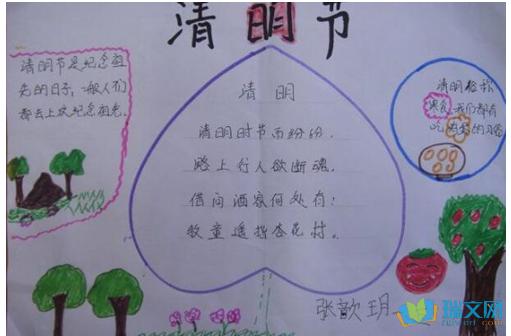 清明节
清明节是纪念祖
先的日子，一般人们
都去上坟纪念祖先.
清 明
清明时节雨纷纷.
路上行人欲断魂.
借问酒家何处有:
牧童遥指杏花村.
清明俗称
寒食，我们都有
吃的习俗
张歆玥
瑞文网